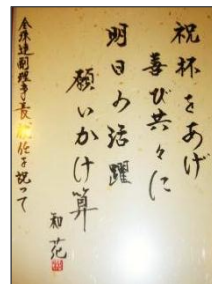 祝杯をあげ
喜び共々に
明日の活躍
願いかけ算
和範
全珠連副理事長就任を祝って